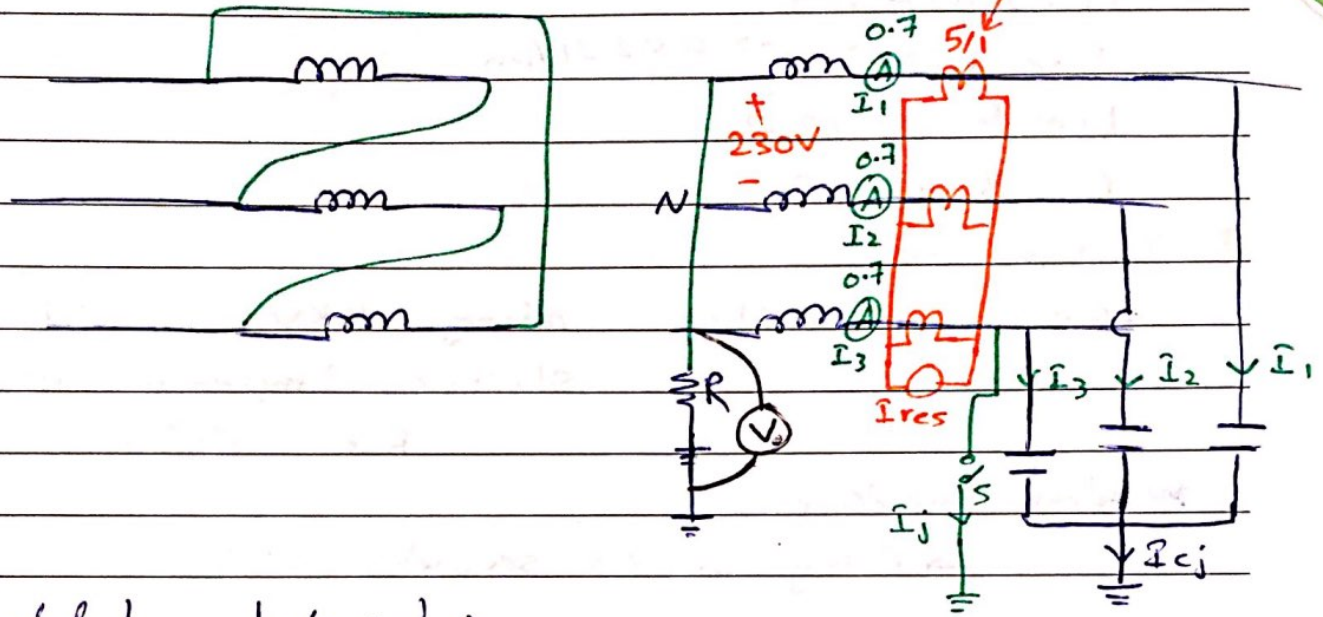 0.7
5/1
A
I1
+
230V
-
0.7
N
A
I2
0.7
A
I3
R
V
Ires
I3
I2
I1
S
Ij
Icj